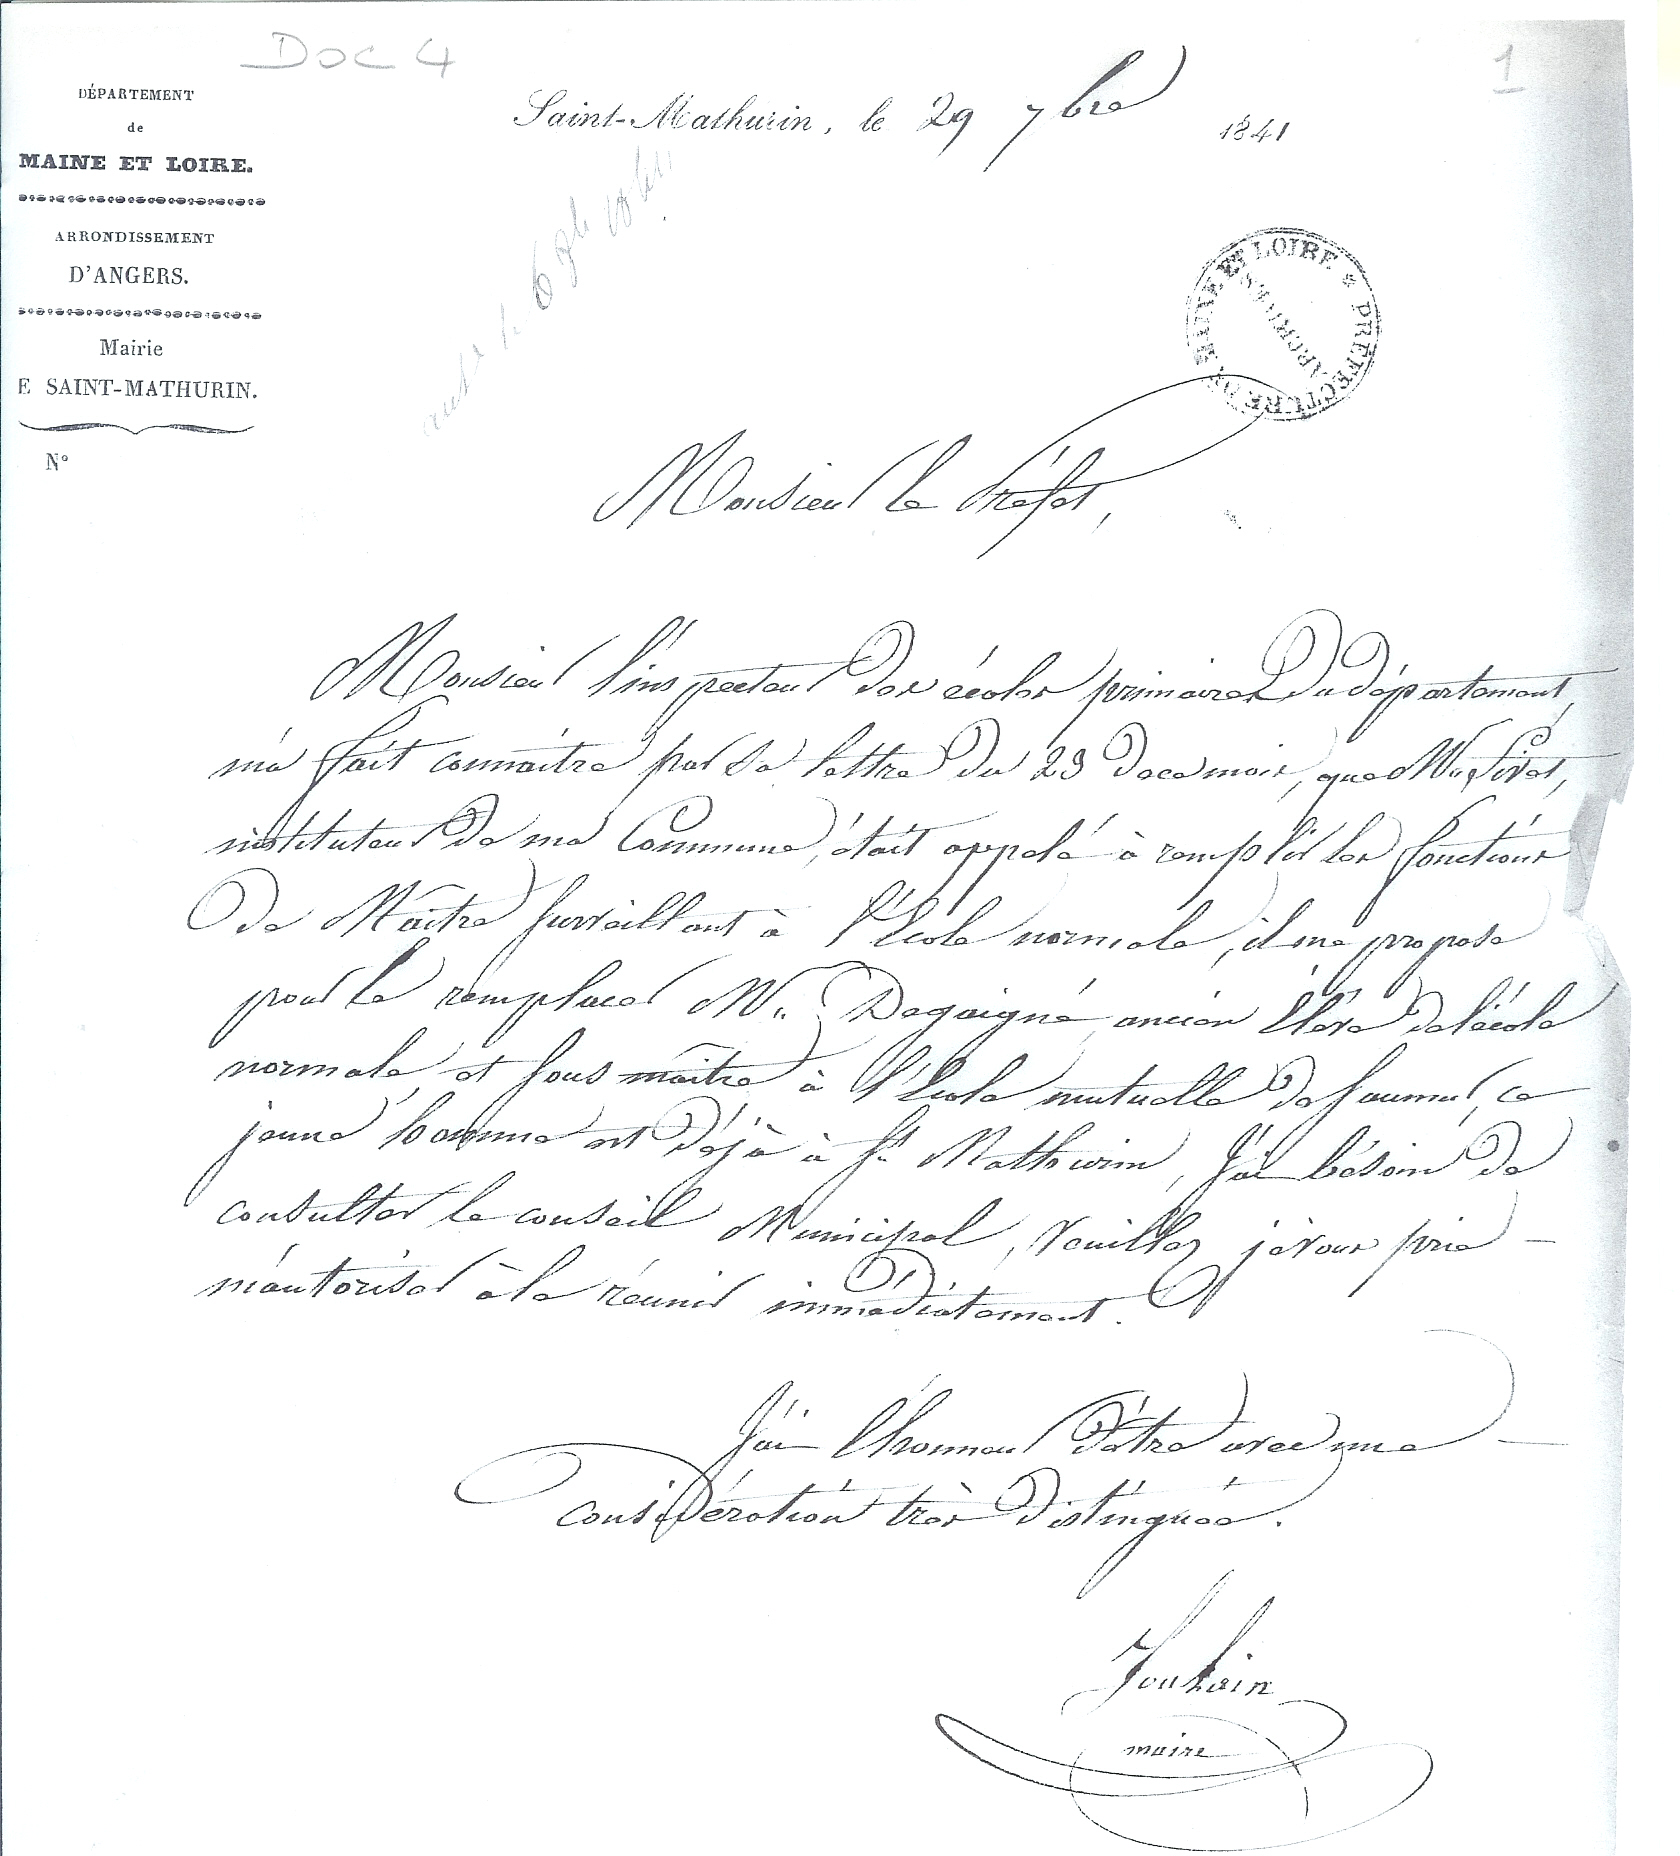 DOC 4
1
DÉPARTEMENT
de
MAINE ET LOIRE.
ARRONDISSEMENT
D'ANGERS.
Mairie
E SAINT-MATHURIN.
N°
Saint-Mathurin, le 29 7bre 1841
PRÉFECTURE DE MAINE ET LOIRE *
ARCHIVES
Monsieur le Préfet,
Monsieur l'inspecteur des écoles primaires du département,
m'a fait connaître par sa lettre du 23 de ce mois, que Mr
instituteur de ma Commune, était appelé à remplir les fonctions
de Maître surveillant à l'École normale, il me propose
pour le remplacer Mr. Degaigné ancien Élève de l'école
normale, et sous maître à l'École mutuelle de Saumur, ce
jeune homme est déjà à St Mathurin, J'ai bésoin de
consulter le conseil Municipal, Veuillez je vous prie
m'autoriser à le réunir immédiatement.
J'ai l'honneur d'être avec une
considération très distinguée.
Joulain
maire